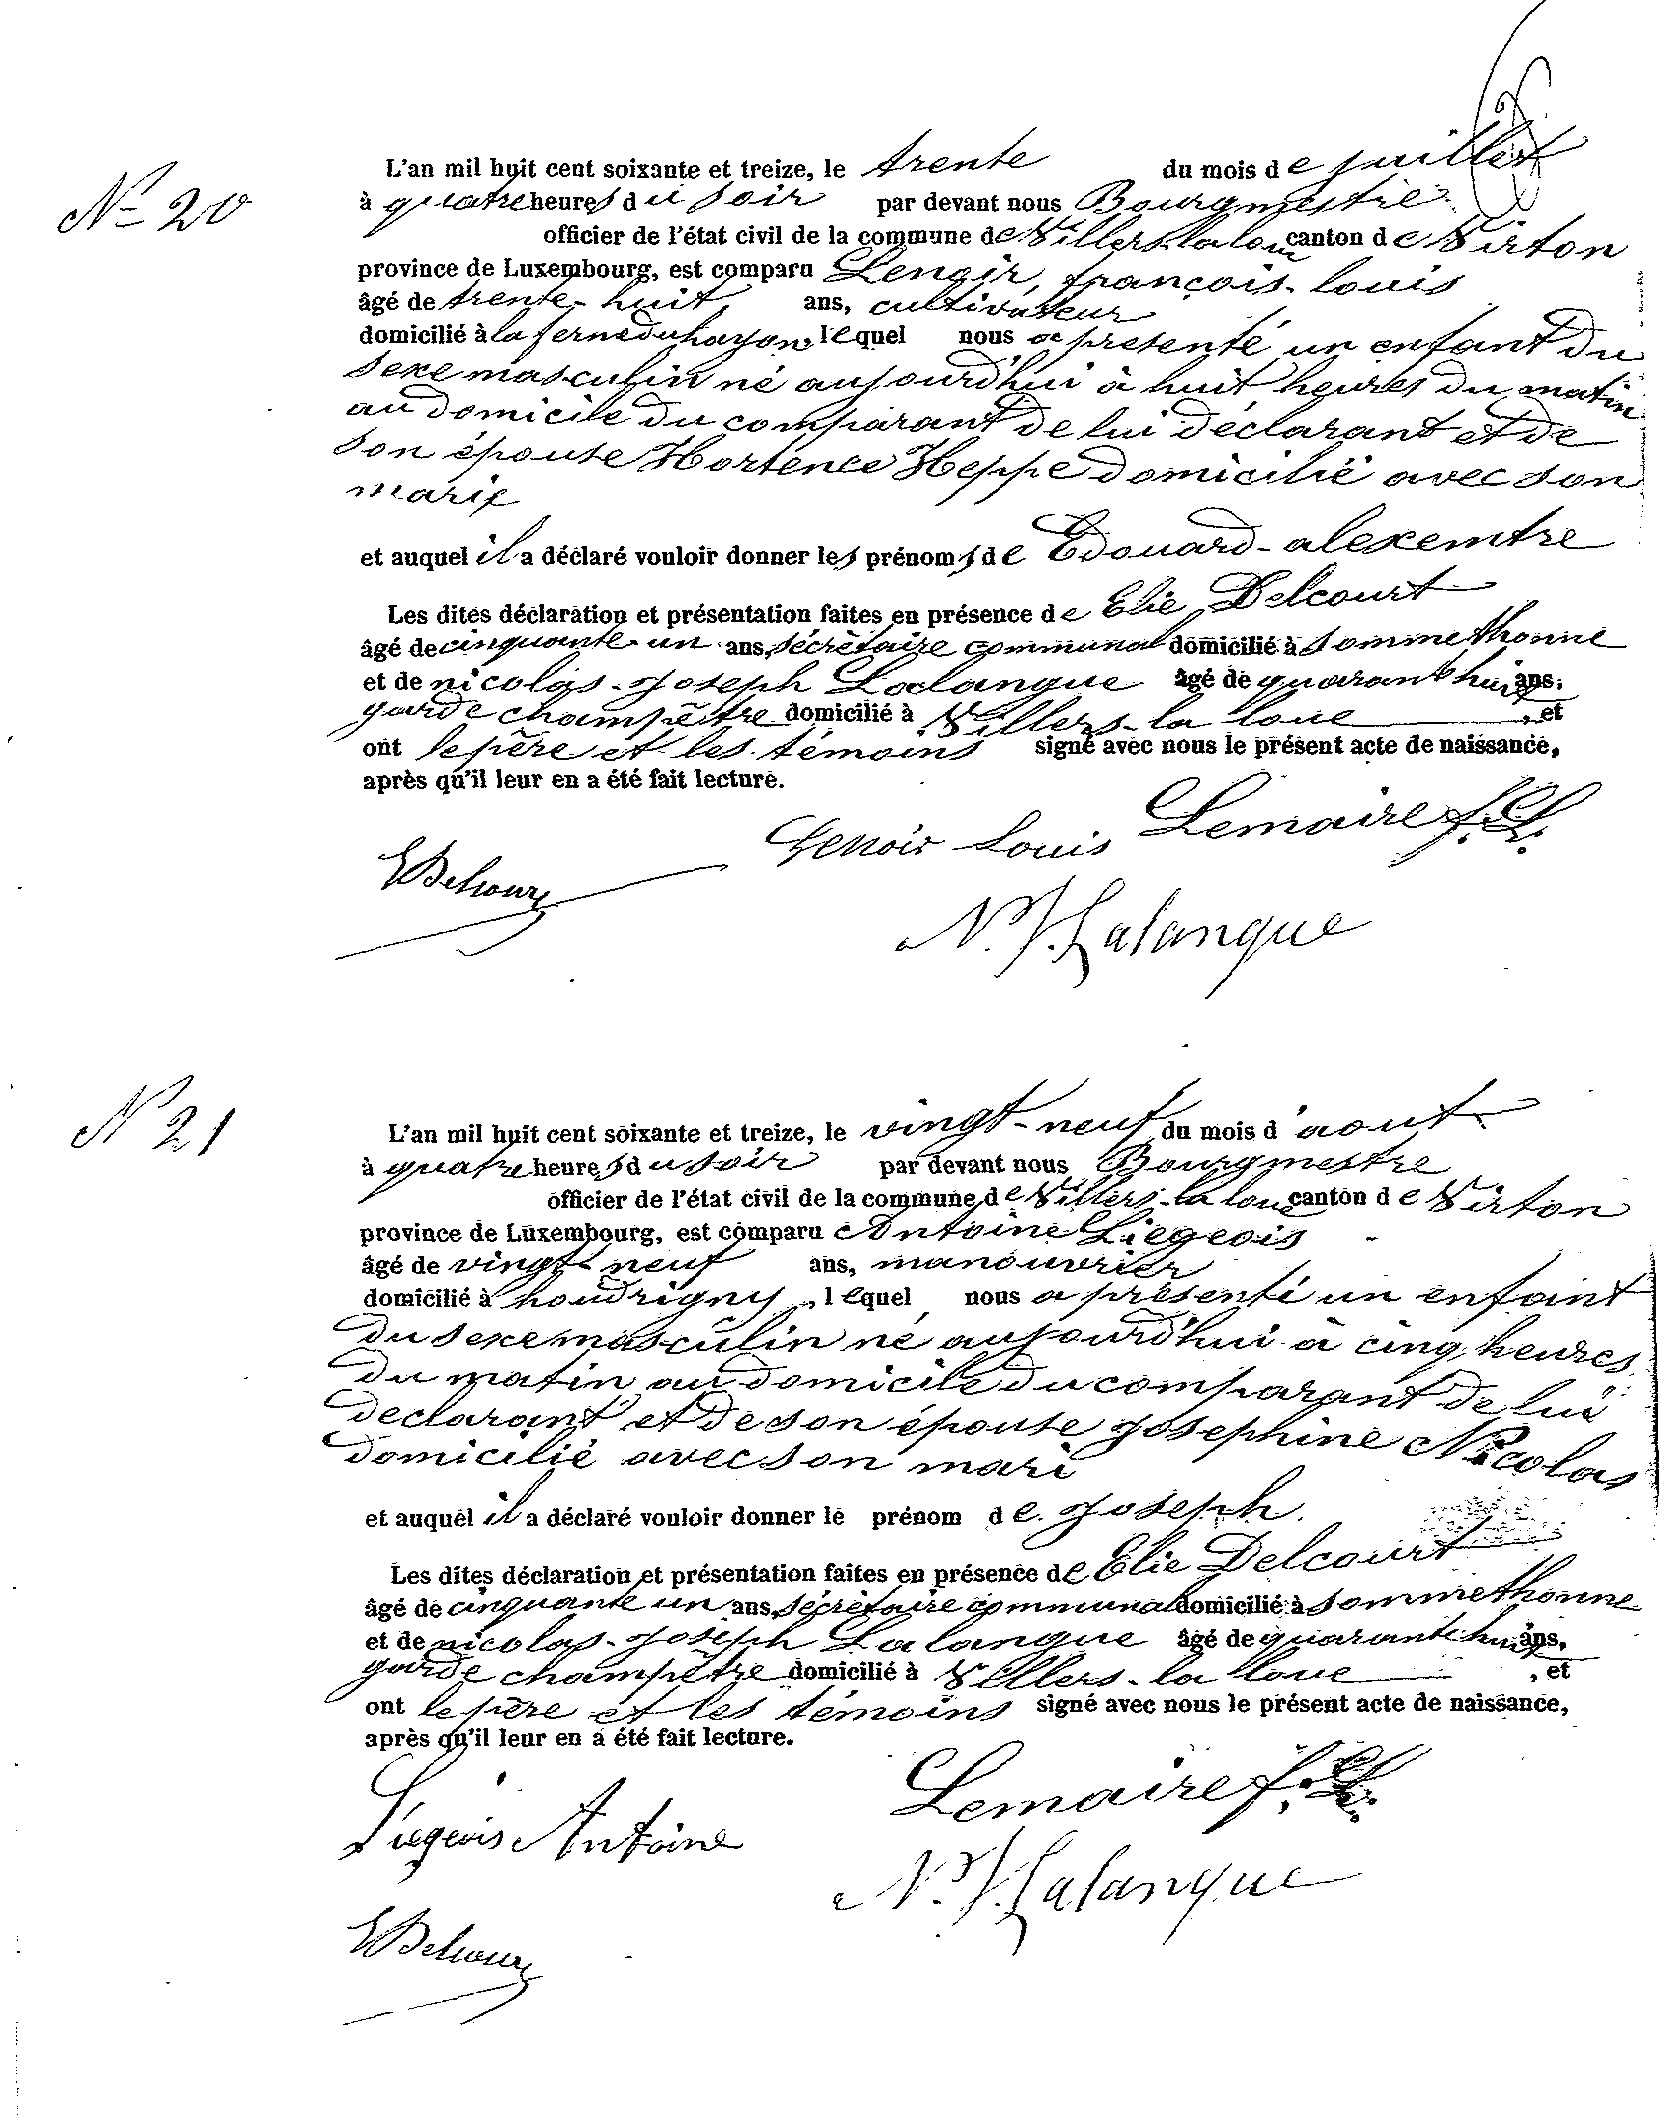 N° 20
L'an mil huit cent soixante et treize, le trente du mois de juillet
à quatre heures du soir par devant nous Bourgmestre
officier de l'état civil de la commune de Villers-la loue canton de Virton
province de Luxembourg, est comparu Lenoir, françois-louis
âgé de trente-huit ans, cultivateur
domicilié à la ferme du hayon, lequel nous a presenté un enfant du
sexe masculin né aujourd'hui à huit heures du matin
au domicile du comparant de lui déclarant et de
son épouse Hortence Heppe domicilié avec son
marie
et auquel il a déclaré vouloir donner les prénoms de Edouard-alexemtre
Les dites déclaration et présentation faites en présence de Elie Delcourt
âgé de cinquante-un ans, sécrètaire communal domicilié à sommethonne
et de nicolas-joseph Lalangue âgé de quarant huit ans,
garde champêtre domicilié à Villers-la loue, et
ont le père et les témoins signé avec nous le présent acte de naissance,
après qu'il leur en a été fait lecture.
Lenoir Louis Lemaire f.
EDelcourt
N. J. Lalangue
N 21
L'an mil huit cent soixante et treize, le vingt-neuf du mois d'aout
à quatre heures du soir par devant nous Bourgmestre
officier de l'état civil de la commune de Villers-la loue canton de Virton
province de Luxembourg, est comparu Antoine Liegeois
âgé de vingt-neuf ans, manouvrier
domicilié à houdrigny, lequel nous a présenté un enfant
du sexe masculin né aujourd'hui à cinq heures
du matin au domicile du comparant de lui
declarant et de son épouse josephine Nicolas
domicilié avec son mari
et auquel il a déclaré vouloir donner le prénom de joseph.
Les dites déclaration et présentation faites en présence de Elie Delcourt
âgé de cinquante un ans, sécrètaire communal domicilié à sommethonne
et de nicolas-joseph Lalangue âgé de quarante huit ans,
garde champêtre domicilié à Villers-la loue, et
ont le père et les témoins signé avec nous le présent acte de naissance,
après qu'il leur en a été fait lecture.
Lemaire f.
Liegeois Antoine
N. J. Lalangue
EDelcourt